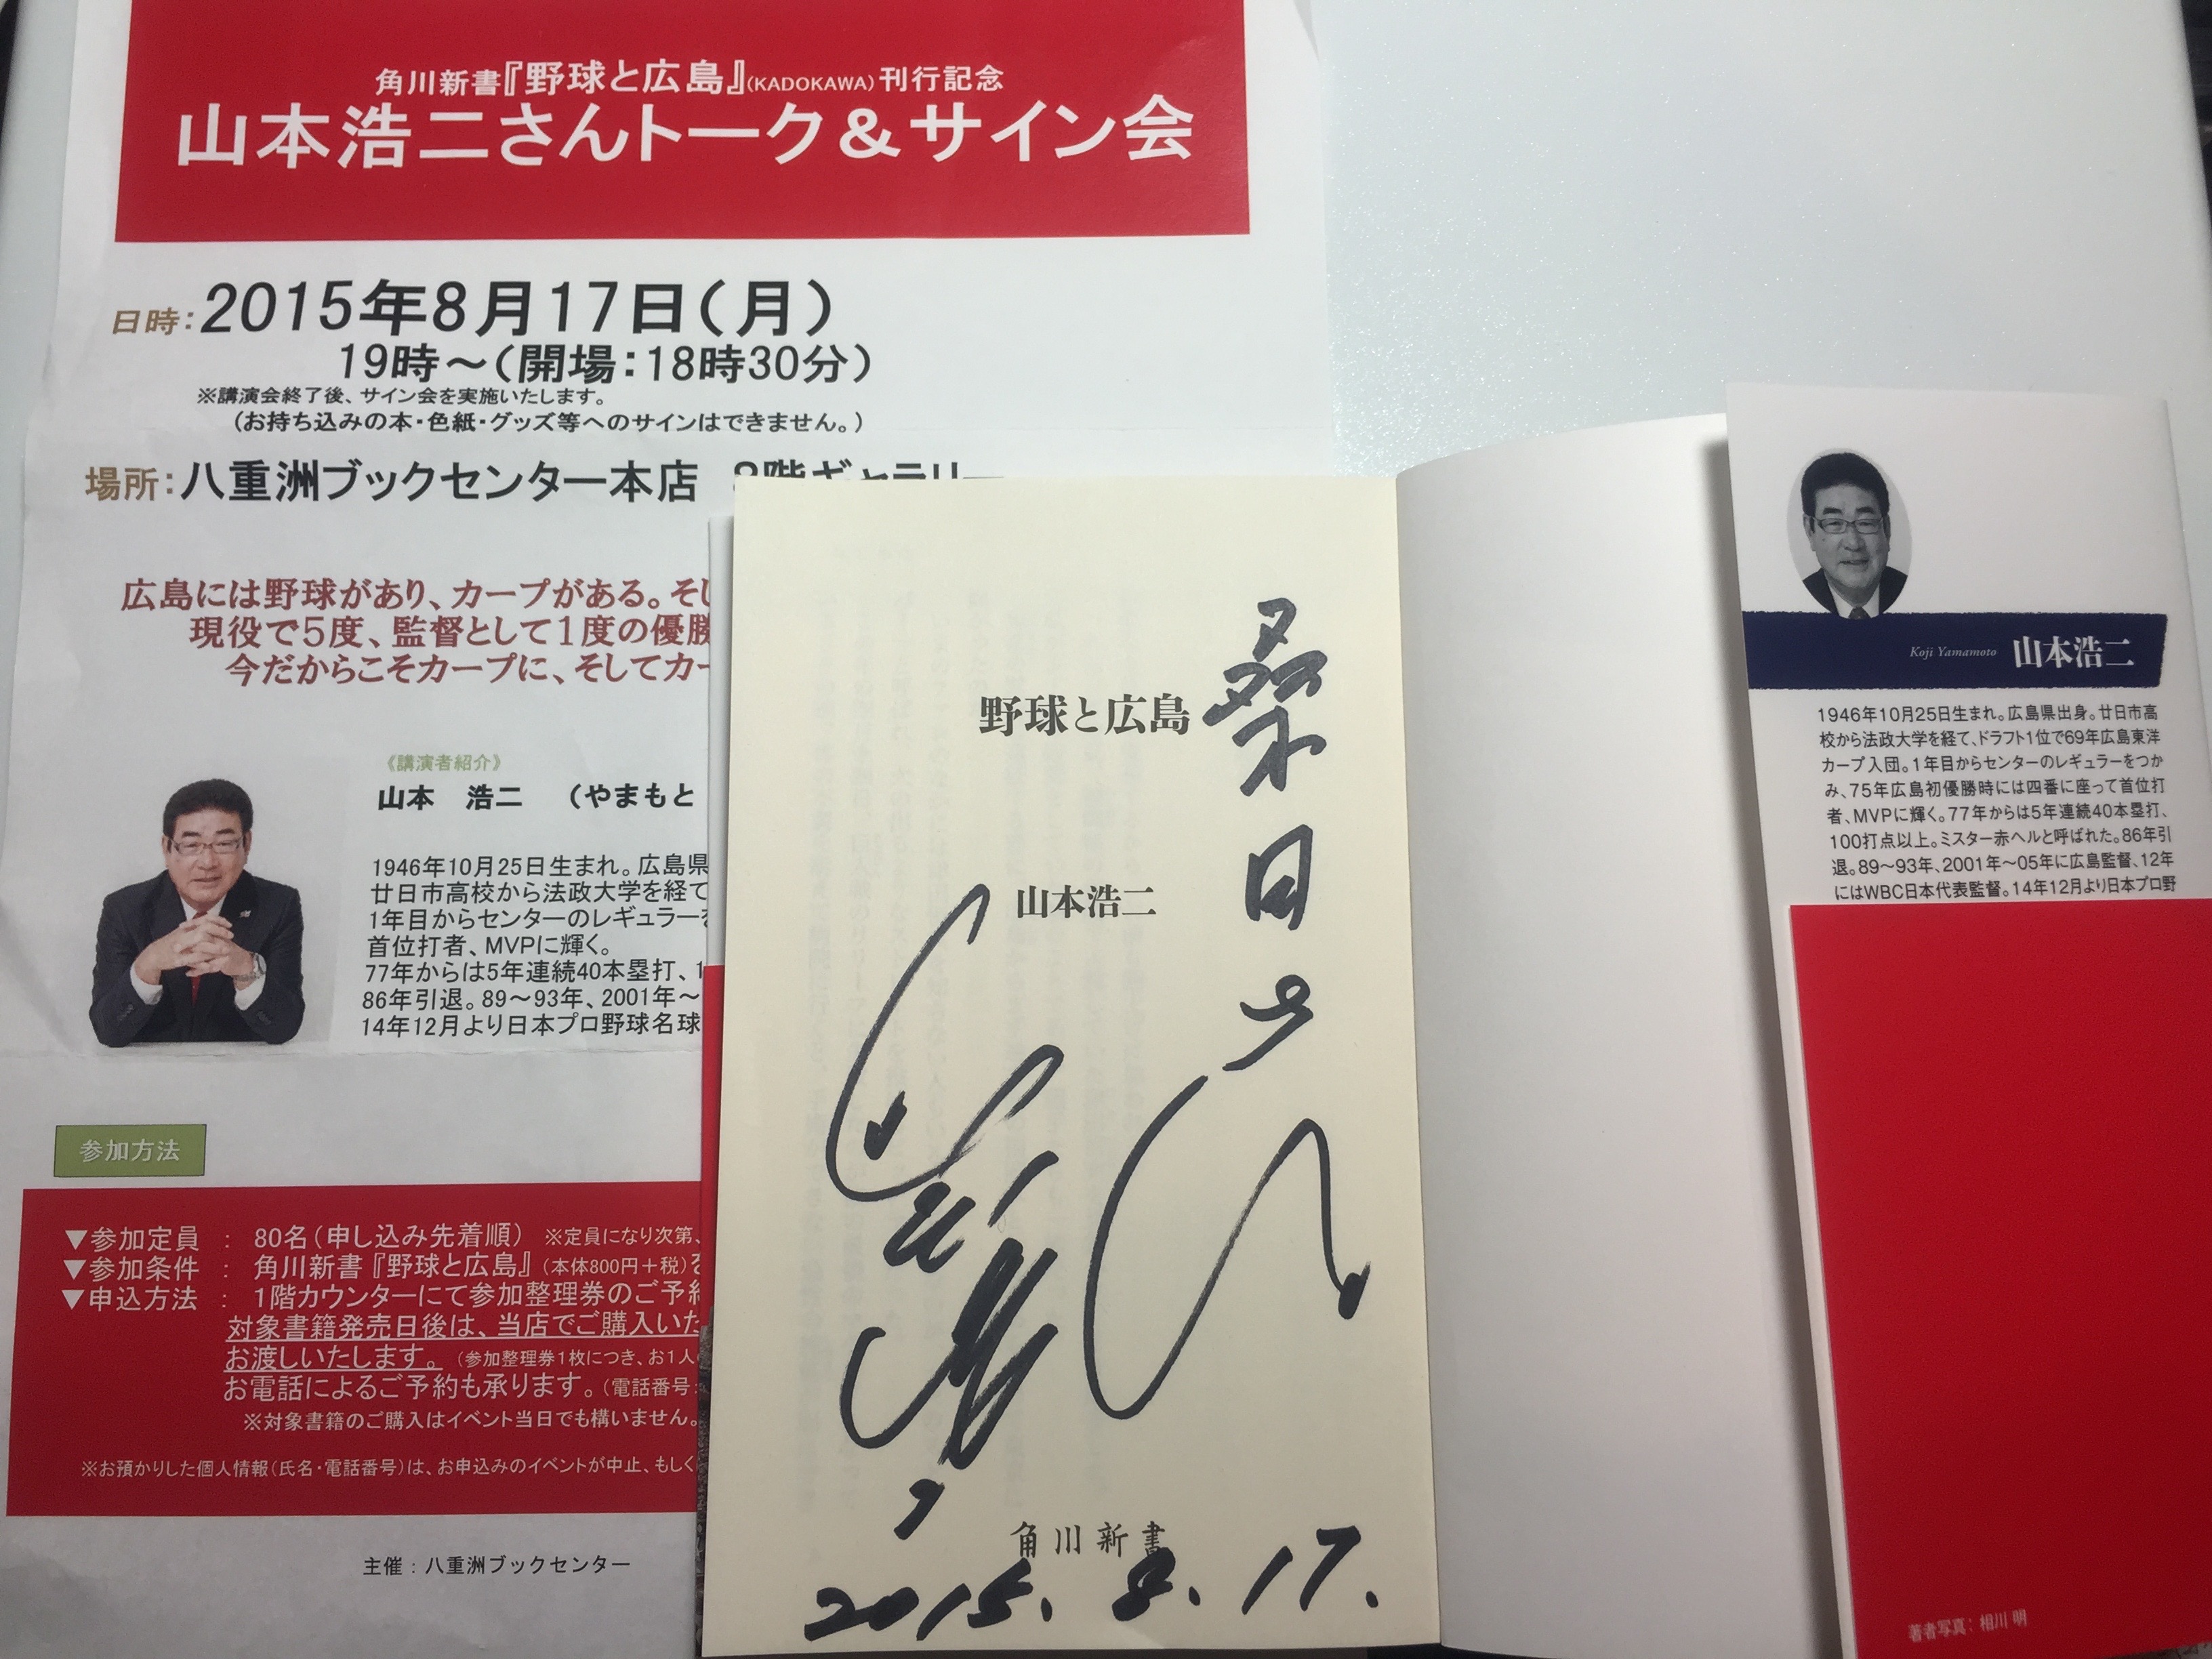 角川新書『野球と広島』(KADOKAWA)刊行記念
山本浩二さんトーク&サイン会
日時:2015年8月17日(月)
19時~(開場:18時30分)
※講演会終了後、サイン会を実施いたします。
(お持ち込みの本・色紙・グッズ等へのサインはできません。)
場所:八重洲ブックセンター本店 8階ギャラリー
広島には野球があり、カープがある。そし
現役で5度、監督として1度の優勝
今だからこそカープに、そしてカー
《講演者紹介》
山本 浩二 (やまもと
1946年10月25日生まれ。広島県
廿日市高校から法政大学を経て
1年目からセンターのレギュラーを
首位打者、MVPに輝く。
77年からは5年連続40本塁打、1
86年引退。89~93年、2001年~
14年12月より日本プロ野球名球
参加方法
▼参加定員 : 80名(申し込み先着順) ※定員になり次第、
▼参加条件 : 角川新書『野球と広島』(本体800円+税)を
▼申込方法 : 1階カウンターにて参加整理券のご予約
対象書籍発売日後は、当店でご購入いた
お渡しいたします。(参加整理券1枚につき、お1人
お電話によるご予約も承ります。(電話番号:
※対象書籍のご購入はイベント当日でも構いません。
※お預かりした個人情報(氏名・電話番号)は、お申込みのイベントが中止、もしく
主催:八重洲ブックセンター
野球と広島
山本浩二
角川新書
2015.8.17.
Koji Yamamoto 山本浩二
1946年10月25日生まれ。広島県出身。廿日市高
校から法政大学を経て、ドラフト1位で69年広島東洋
カープ入団。1年目からセンターのレギュラーをつか
み、75年広島初優勝時には四番に座って首位打
者、MVPに輝く。77年からは5年連続40本塁打、
100打点以上。ミスター赤ヘルと呼ばれた。86年引
退。89~93年、2001年~05年に広島監督、12年
にはWBC日本代表監督。14年12月より日本プロ野
著者写真:相川 明